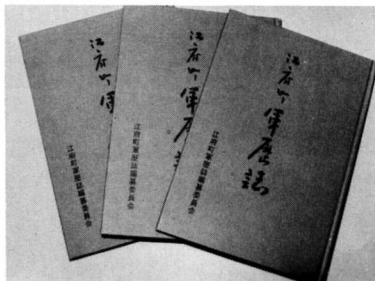 江府町軍歴誌
江府町軍歴誌編纂委員会
江府町軍歴
江府町軍歴誌編纂委員会
江府町軍
江府町軍歴誌編纂委員会